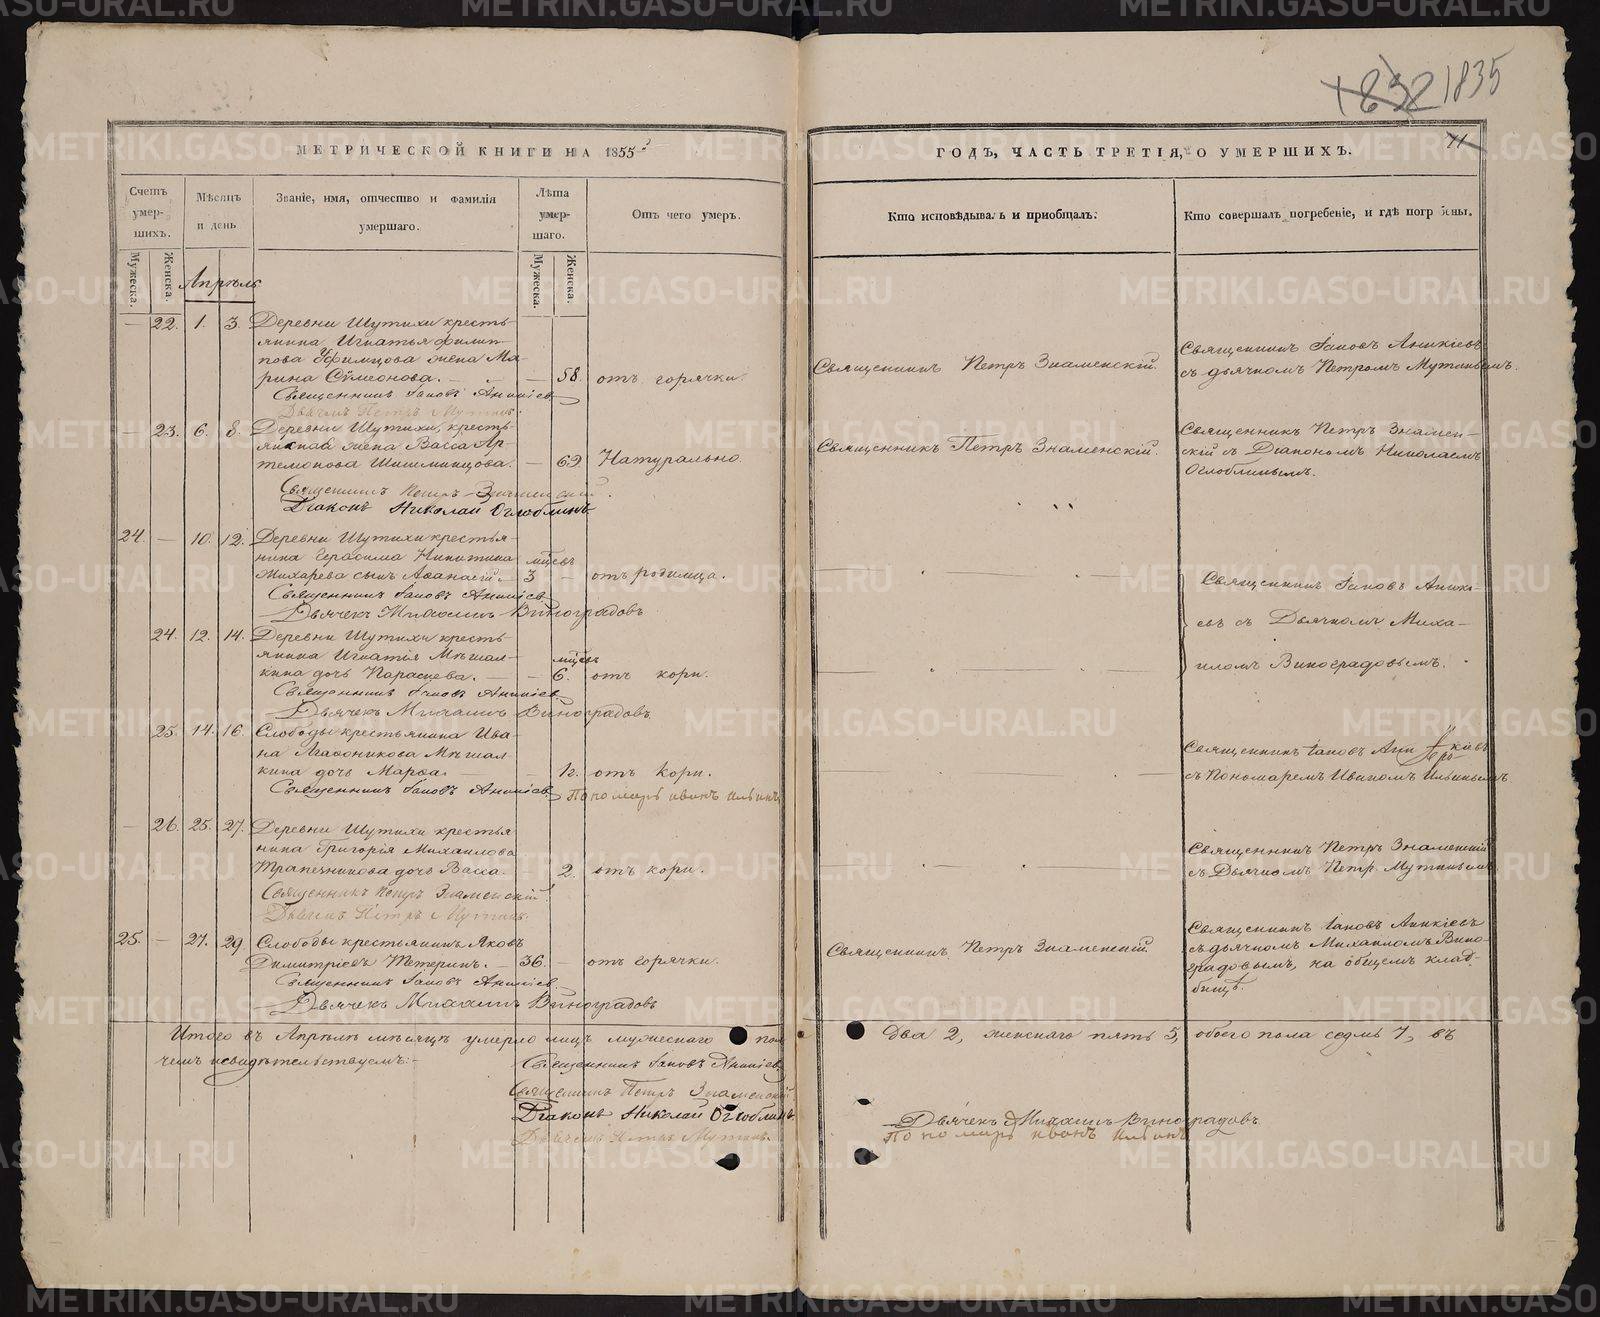 1832 1835
11
МЕТРИЧЕСКОЙ КНИГИ НА 1855
ГОДЪ, ЧАСТЬ ТРЕТІЯ, О УМЕРШИХЪ.
Счетъ умер-шихъ.
Мѣсяцъ и день
Званіе, имя, отчество и фамилія умершаго.
Лѣта умер-шаго.
Отъ чего умеръ.
Кто исповѣдывалъ и приобщалъ.
Кто совершалъ погребеніе, и гдѣ погребены.
Мужеска. Женска.
Мужеска. Женска.
Апрѣль
— 22. 1. 3. Деревни Шутихи кресть-
янина Игнатья Филип-
пова Уфимцова жена Ма-
рина Сѵмеонова. — 58. отъ горячки.
Священникъ Петръ Знаменскій.
Священникъ Іаковъ Аникіевъ
съ дьячкомъ Петромъ Мутинымъ.
Священникъ Іаковъ Аникіевъ
Дьячекъ Петръ Мутинъ.
— 23. 6. 8. Деревни Шутихи, кресть-
янская жена Васса Ар-
темонова Шишминцова. — 69. Натурально.
Священникъ Петръ Знаменскій.
Священникъ Петръ Знамен-
скій съ Діакономъ Николаемъ
Оглоблинымъ.
Священникъ Петръ Знаменскій.
Діаконъ Николай Оглоблинъ.
24. — 10. 12. Деревни Шутихи крестья-
нина Герасима Никитина
Жихарева сынъ Аѳанасій. мцевъ 3 — отъ родимца.
Священникъ Іаковъ Аникіевъ
Дьячекъ Михаилъ Виноградовъ
Священникъ Іаковъ Аники-
евъ съ Дьячкомъ Миха-
иломъ Виноградовымъ.
24. 12. 14. Деревни Шутихи кресть-
янина Игнатія Мѣшал-
кина дочь Параскева. — мцевъ 6. отъ кори.
Священникъ Іаковъ Аникіевъ
Дьячекъ Михаилъ Виноградовъ.
25. 14. 16. Слободы крестьянина Ива-
на Агаѳоникова Мѣшал-
кина дочь Марѳа. — 12. отъ кори.
Священникъ Іаковъ Аникіевъ
Пономарь Иванъ Ильинъ
Священникъ Іаковъ Аникіевъ
съ Пономаремъ Иваномъ Ильинымъ.
— 26. 25. 27. Деревни Шутихи крестья
нина Григорія Михаилова
Трапезникова дочь Васса. — 2. отъ кори.
Священникъ Петръ Знаменскій
съ Дьячкомъ Петр. Мутинымъ
Священникъ Петръ Знаменскій.
Дьячекъ Петръ Мутинъ.
25. — 27. 29 Слободы крестьянинъ Яковъ
Димитріевъ Тетеринъ. — 36. — отъ горячки.
Священникъ Петръ Знаменскій
Священникъ Іаковъ Аникіевъ
съ дьячкомъ Михаиломъ Вино-
градовымъ, на общемъ клад-
бищѣ.
Священникъ Іаковъ Аникіевъ
Дьячекъ Михаилъ Виноградовъ
Итого въ Апрѣлѣ мѣсяцѣ умерло лицъ мужескаго пола два 2, женскаго пять 5, обоего пола седмь 7, въ
чемъ и свидѣтельствуемъ:-
Священникъ Іаковъ Аникіевъ
Священникъ Петръ Знаменскій
Діаконъ Николай Оглоблинъ
Дьячекъ Петръ Мутинъ.
Дьячекъ Михаилъ Виноградовъ.
Пономарь Иванъ Ильинъ
METRIKI.GASO-URAL.RU